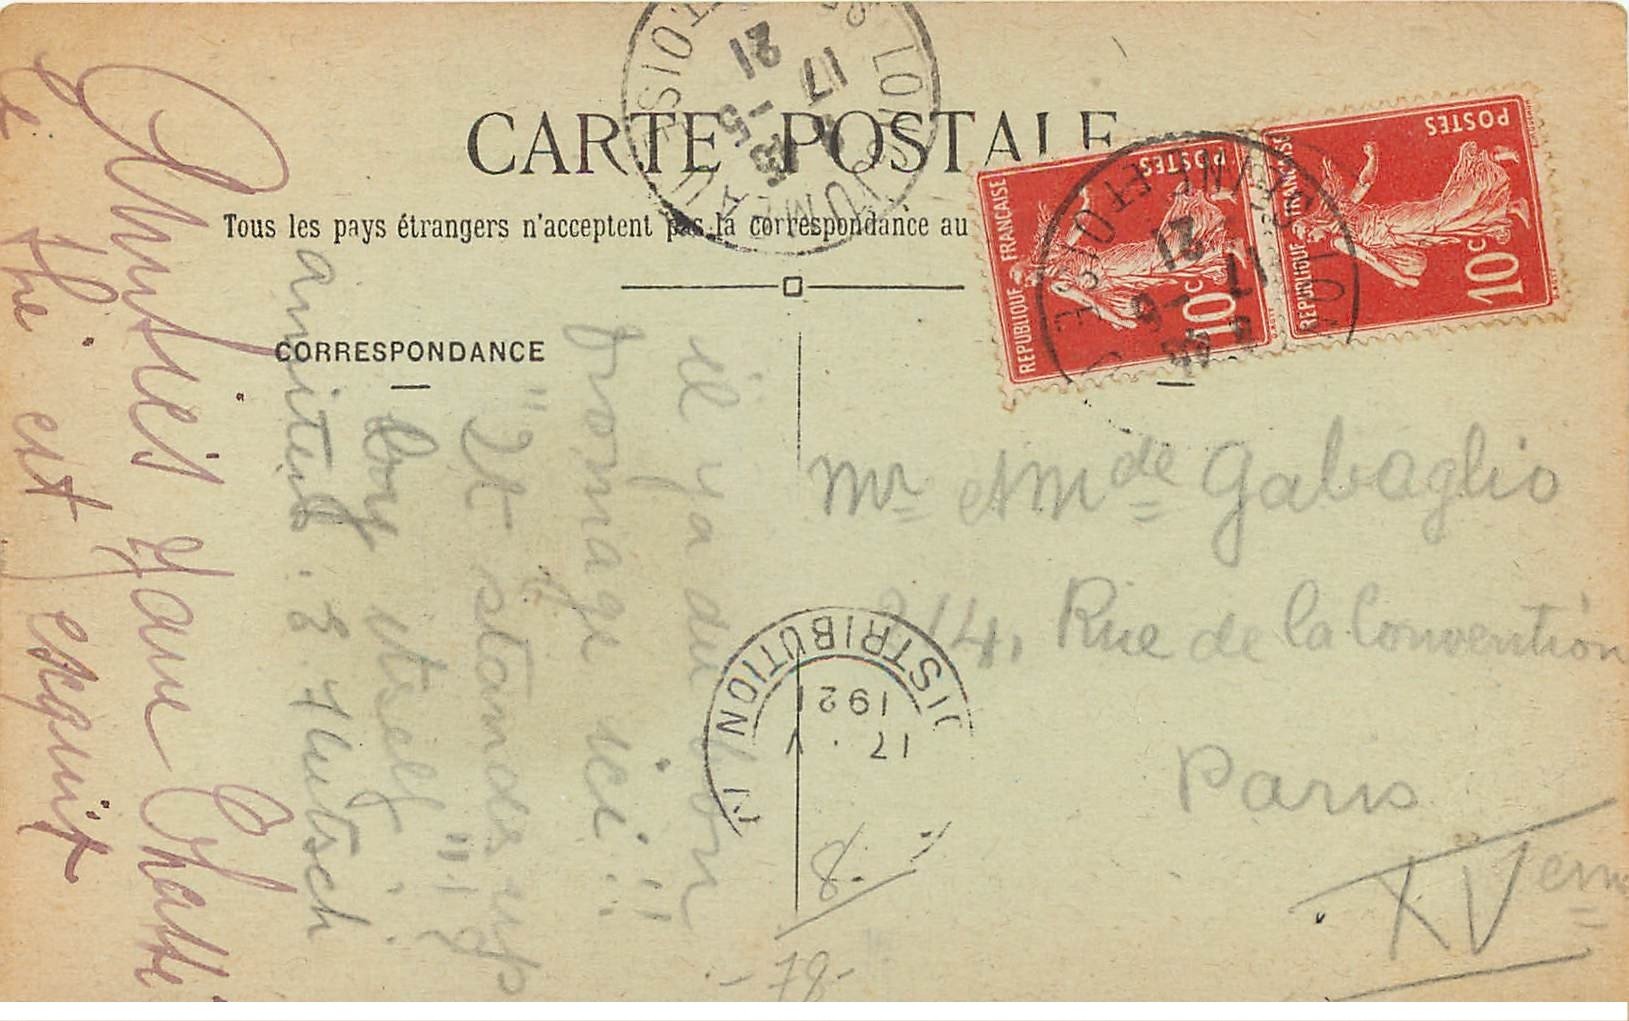 CARTE POSTALE
Tous les pays étrangers n'acceptent pas la correspondance au
CORRESPONDANCE
il y a du bon
fromage ici!!!
"It stands up
boy itself"!
amitiés.
Le thé est exquis
Mr et Mde Gabaglio
214, Rue de la Convention
Paris
XVème
POSTES
REPUBLIQUE FRANCAISE
10c
POSTES
REPUBLIQUE FRANCAISE
10c
SEINE ET OISE
17 -5
21
17
-5
21
DISTRIBUTION
17 . V
1921
8.
-78-